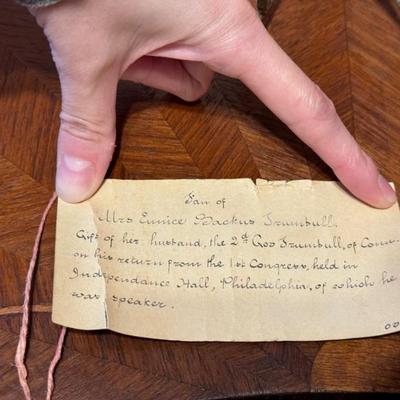 Fan of
Mrs Eunice Backus Trumbull.
Gift of her husband, the 2d Gov Trumbull, of Conn.
on his return from the 1st Congress, held in
Independance Hall, Philadelphia, of which he
was speaker.